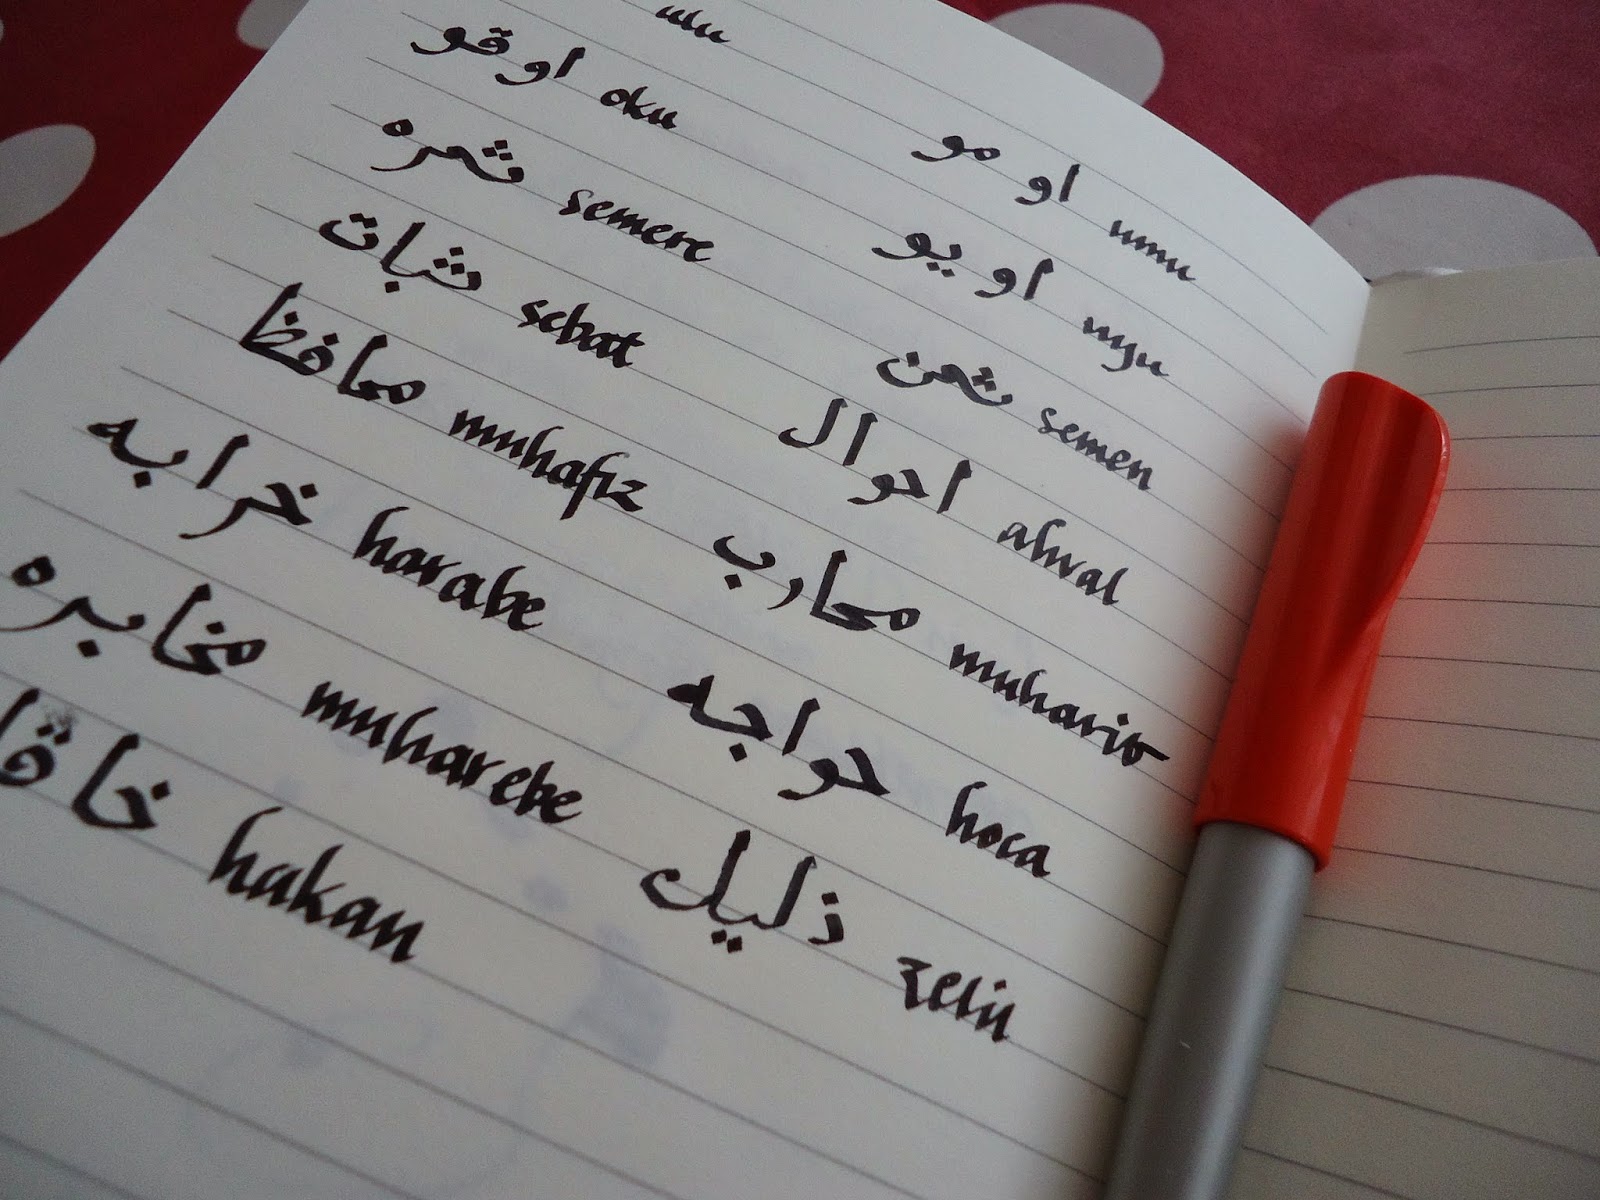 ulu او مو umu
اوقو oku اويو uyu
ثمره semere ثمن semen
ثبات sebat احوال ahval
محافظ muhafız محارب muharib
خرابه harabe حواجه hoca
مخابره muharebe ذليل zelil
hakan